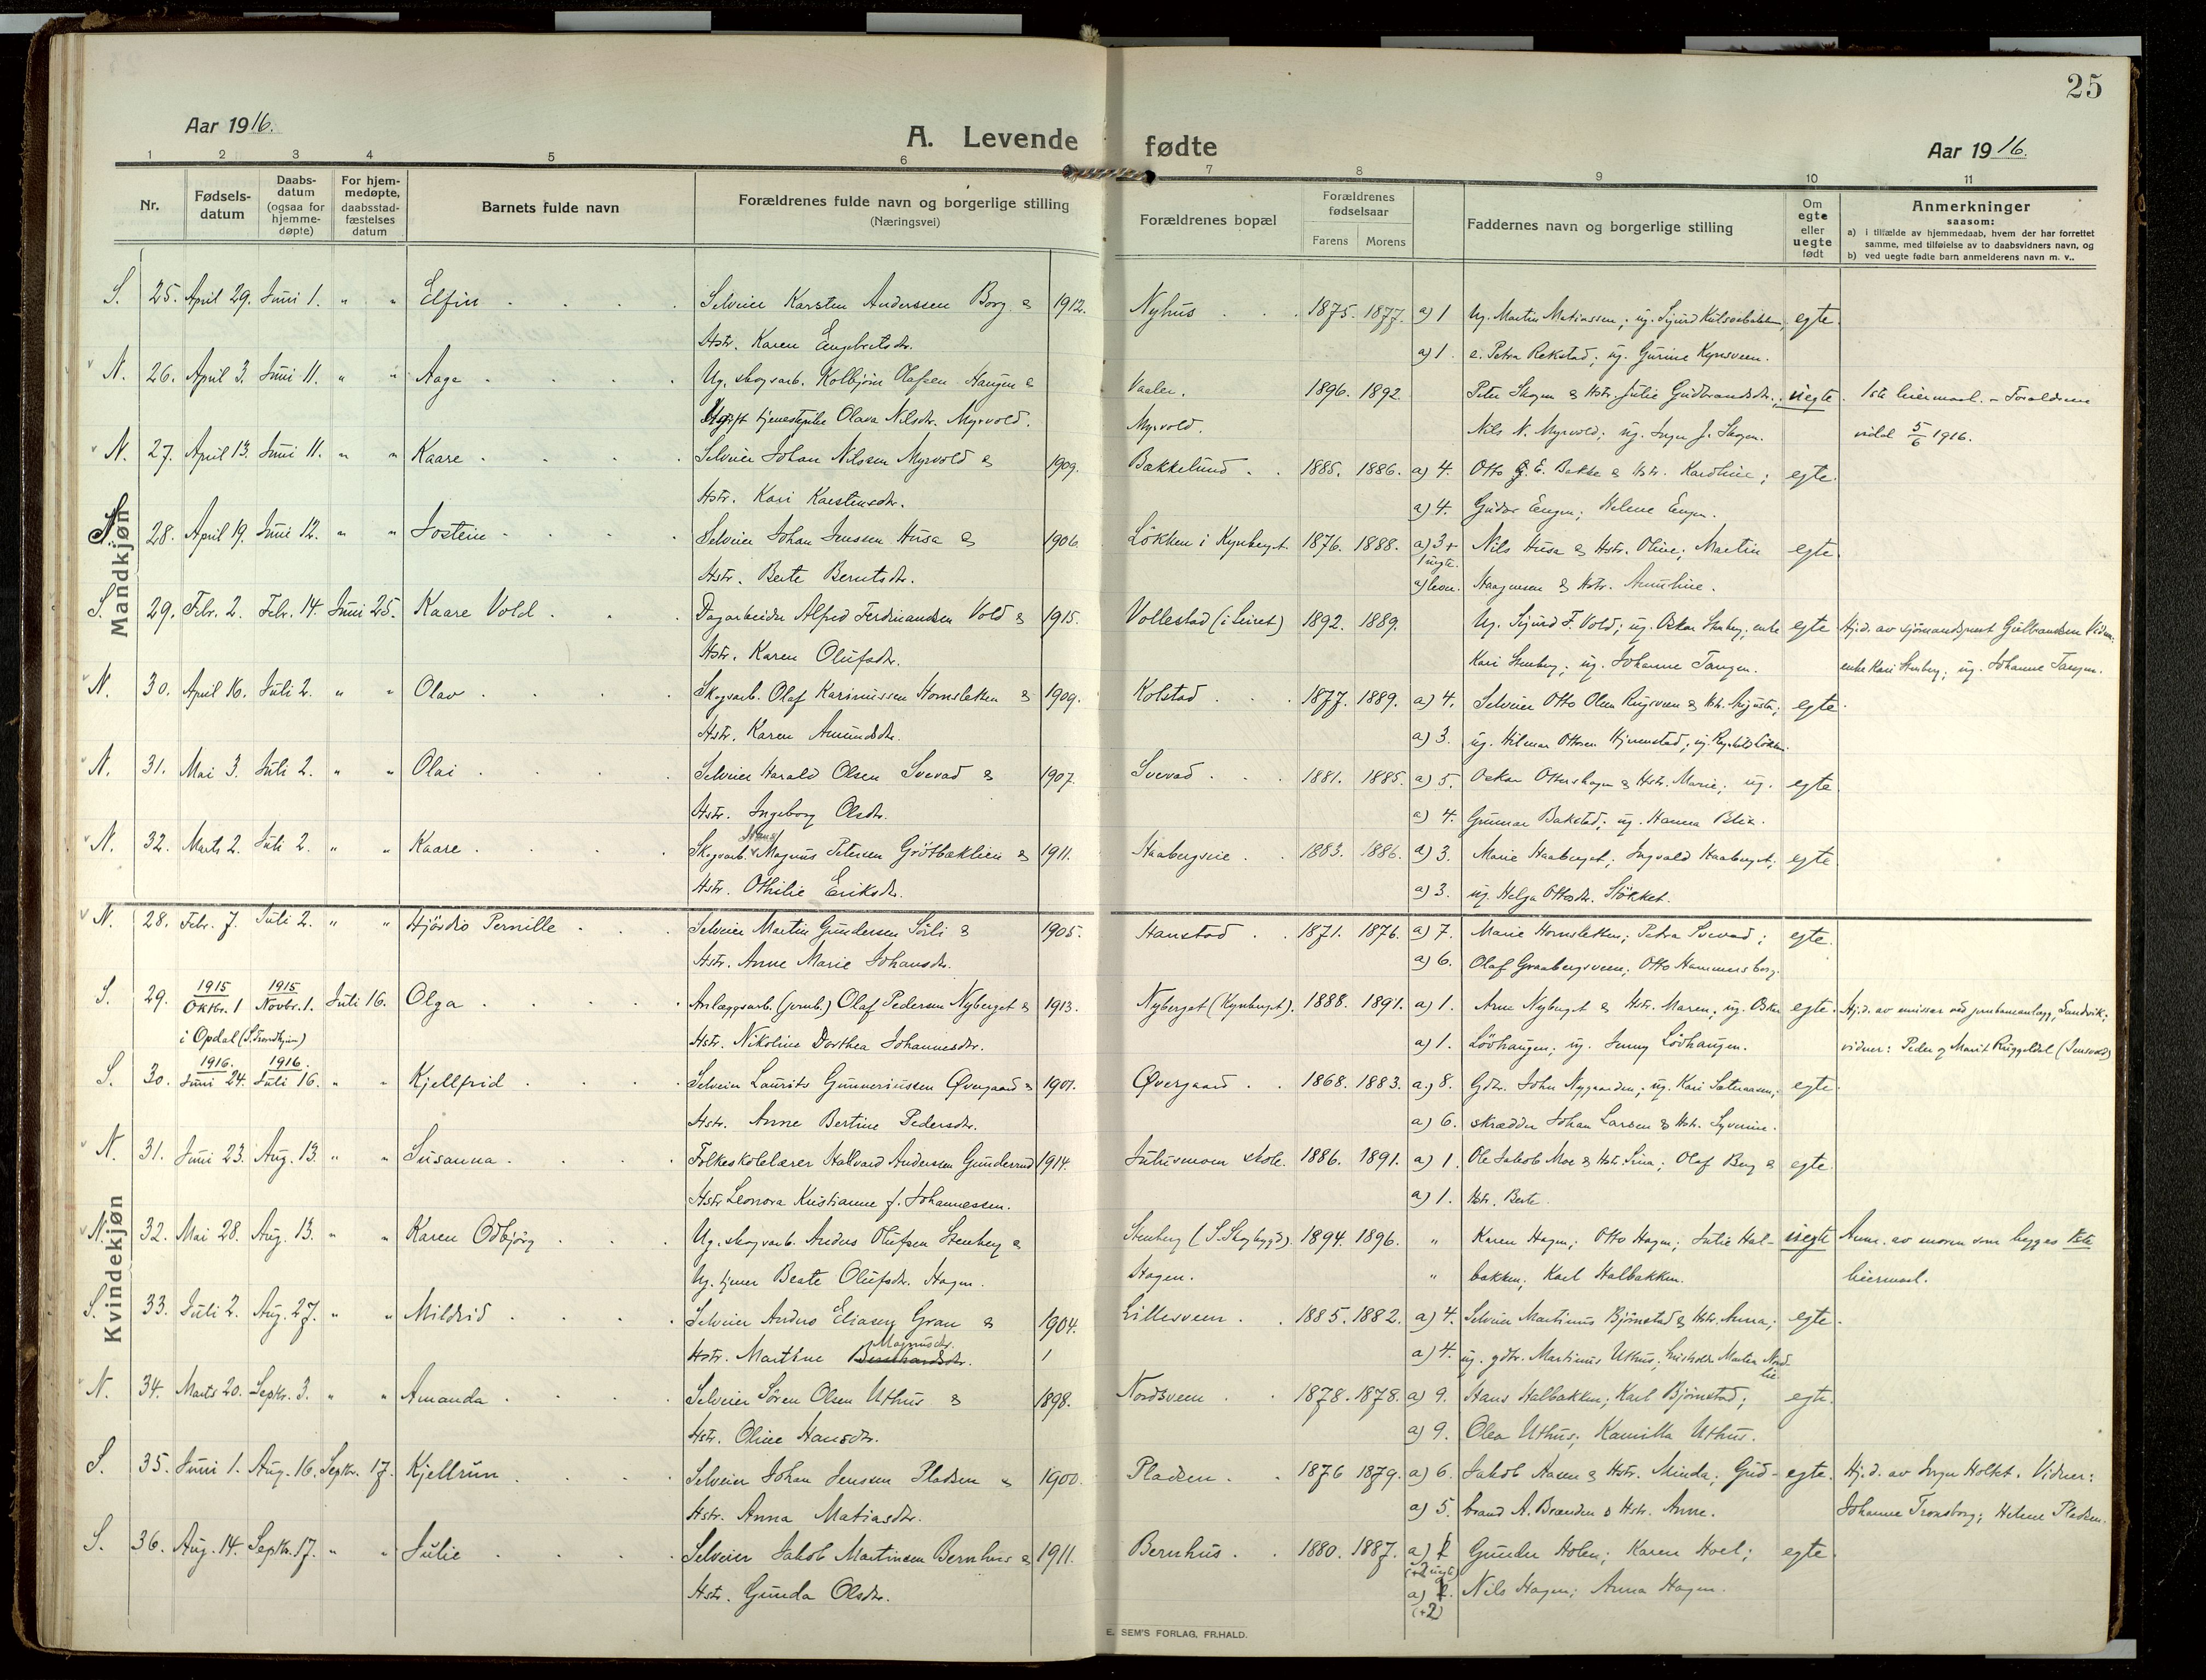 25
Aar 1916.
A. Levende fødte
Aar 1916.
1 2 3 4 5 6 7 8 9 10 11
Nr.
Fødsels-datum
Daabs-datum (ogsaa for hjemme-døpte)
For hjem-medøpte, daabsstad-fæstelses datum
Barnets fulde navn
Forældrenes fulde navn og borgerlige stilling
(Næringsvei)
Forældrenes bopæl
Forældrenes fødselsaar
Farens Morens
Faddernes navn og borgerlige stilling
Om egte eller uegte født
Anmerkninger
saasom:
a) i tilfælde av hjemmedaab, hvem der har forrettet samme, med tilføielse av to daabsvidners navn, og
b) ved uegte fødte barn anmelderens navn m. v..
Mandkjøn
S. 25. April 29. Juni 1. " " Elfin Selveier Karsten Anderssen Borg & 1912. Nyhus 1875. 1877. a) 1 Ug. Martin Matiassen; ug. Sigurd egte.
Hstr. Karen Engebretsdtr. a) 1. e. Petra Rekstad; ug. Gurine Kynsveen.
N. 26. April 3. Juni 11. " " Aage Ug. skogsarb. Kolbjörn Olafsen Haugen & Vaaler. 1896. 1892. Peter Skogen & Hstr. Julie Gudbrandsdtr.; uegte 1ste leiermaal. - Forældrene
Ugift tjenestepike Olava Nilsdtr. Myrvold. Myrvold. Nils N. Myrvold; ug. Inger J. Skogen. viedd 5/6 1916.
N. 27. April 13. Juni 11. " " Kaare Selveier Johan Nilssen Myrvold & 1909. Bakkelund 1885. 1886. a) 4. Otto E. Bakke & Hstr. Karoline; egte.
Hstr. Kari Karstensdtr. a) 4. Gudor Engen; Helene Engen.
N. 28. April 19. Juni 12. " " Jostein Selveier Johan Jenssen Husa & 1906. Lökken i Kynberget 1876. 1888. a) 3 + 1 uegte. Nils Husa & Hstr. Oline; Martin egte
Hstr. Berte Berntsdtr. a) leve. Haagensen & Hstr. Anna Line.
S. 29. Febr. 2. Febr. 14. Juni 25. Kaare Vold Dagarbeider Alfred Ferdinandsen Vold & 1915. Vollestad (i Leiret) 1892. 1889. Ug. Sigurd F. Vold; ug. Oskar Stenberg; enke egte Hj.d. av sjömandsprest Gulbrandsen Vidner:
Hstr. Karen Olufsdtr. Kari Stenberg; ug. Johanne Tangen. enke Kari Stenberg; ug. Johanne Tangen.
N. 30. April 16. Juli 2. " " Olav Skogsarb. Olaf Karinussen Hornsletten & 1909. Kolstad 1877. 1889. a) 4. Selveier Otto Olsen Rugsveen & Hstr. Augusta; egte
Hstr. Karen Amundsdtr. a) 3. ug. Hilmar Ottosen Hjernstad; ug. Ragnhild Lökken.
N. 31. Mai 3. Juli 2. " " Olai Selveier Harald Olsen Svevad & 1907. Svevad 1881. 1885. a) 5. Oskar Otterskogen & Hstr. Marie; ug. egte
Hstr. Ingeborg Olsdtr. a) 4. Gunnar Bakstad; ug. Hanna Blix.
N. 32. Marts 2. Juli 2. " " Kaare Skogsarb. Hans Magnus Petersen Grötbæklien & 1911. Haabergseie 1883. 1886. a) 3. Marie Haaberget; Ingvald Haaberget; egte
Hstr. Othilie Eriksdtr. a) 3. ug. Helga Ottosdtr. Stökket.
Kvindekjøn
N. 28. Febr. 7. Juli 2. " " Hjördis Pernille Selveier Martin Gundersen Sörli & 1905. Hanstad 1871. 1876. a) 7. Marie Hornsletten; Petra Svevad; egte.
Hstr. Anne Marie Johansdtr. a) 6. Olaf Graabergsveen; Otto Hammersborg.
S. 29. 1915 Oktbr. 1 1915 Novbr. 1. Juli 16. Olga Anlægsarb. (jernb.) Olaf Pedersen Nyberget & 1913. Nyberget (Kynberget). 1888. 1891. a) 1. Arne Nyberget & Hstr. Maren; ug. Oskar egte. Hj.d. av emissær ved jernbaneanlægg, Sandvik;
i Opdal (S. Trondhjem) Hstr. Nikoline Dorthea Johannesdtr. a) 1. Lövhaugen; ug. Jenny Lövhaugen. vidner: Peder og Marit Ruggeldal (Jensvold)
S. 30. 1916. Juni 24. 1916. Juli 16. " " Kjellfrid Selveier Laurits Gunneriussen Øvergaard & 1901. Øvergaard 1868. 1883. a) 8. Gdbr. John Nygaarden; ug. Kari Sæteraasen; egte
Hstr. Anne Bertine Pedersdtr. a) 6. skrædder Johan Larsen & Hstr. Syverine.
N. 31. Juni 23. Aug. 13. " " Susanna Folkeskolelærer Halvard Andersen Gunderud 1914. Julusmoen skole. 1886. 1891. a) 1. Ole Jakob Moe & Hstr. Sina; Olaf Berg & egte
Hstr Leonora Kristianne f. Johannessen. a) 1. Hstr. Berte.
N. 32. Mai 28. Aug. 13. " " Karen Odbjörg Ug. skogsarb. Anders Olufsen Stenberg & Stenberg (S. Skogbygd). 1894. 1896. " Karen Hagen; Otto Hagen; Julie Hal- uegte Anm. av moren som begges 1ste
Ug. tjener Beate Olufsdtr. Hagen. Hagen. " bakken; Karl Halbakken. leiermaal.
S. 33. Juli 2. Aug. 27. " " Mildrid Selveier Anders Eliasen Gran & 1904. Lillesveen 1885. 1882. a) 4. Selveier Martinus Björnstad & Hstr. Anna; egte.
Hstr. Martine Bernhardsdtr. Magnusdtr. a) 4. ug. gdbr. Martinus Uthus; husholdr. Marten Nordlie.
N. 34. Marts 20. Septbr. 3. " " Amanda Selveier Sören Olsen Uthus & 1898. Nordsveen 1878. 1878. a) 9. Hans Halbakken; Karl Bjørnstad; egte.
Hstr. Oline Hansdtr. a) 9. Olea Uthus; Kamilla Uthus.
S. 35. Juni 1. Aug. 16. Septbr. 17. Kjellrun Selveier Johan Jenssen Pladsen & 1900. Pladsen 1876 1879. a) 6. Jakob Aasen & Hstr. Minda; Gud- egte. Hj.d. av Inger Holtet. Vidner:
Hstr. Anna Matiasdtr. a) 5. brand A. Brænden & Hstr. Anne. Johanne Tronsborg; Helene Pladsen.
S. 36. Aug. 14. Septbr. 17. " " Julie Selveier Jakob Martinsen Bernhus & 1911. Bernhus 1880. 1887. a) 1 (+2 uegte) Gunder Holen; Karen Hoel; egte
Hstr. Gunda Olsdtr. a) 1. (+2) Nils Hagen; Anna Hagen.
E. SEM'S FORLAG, FR.HALD.